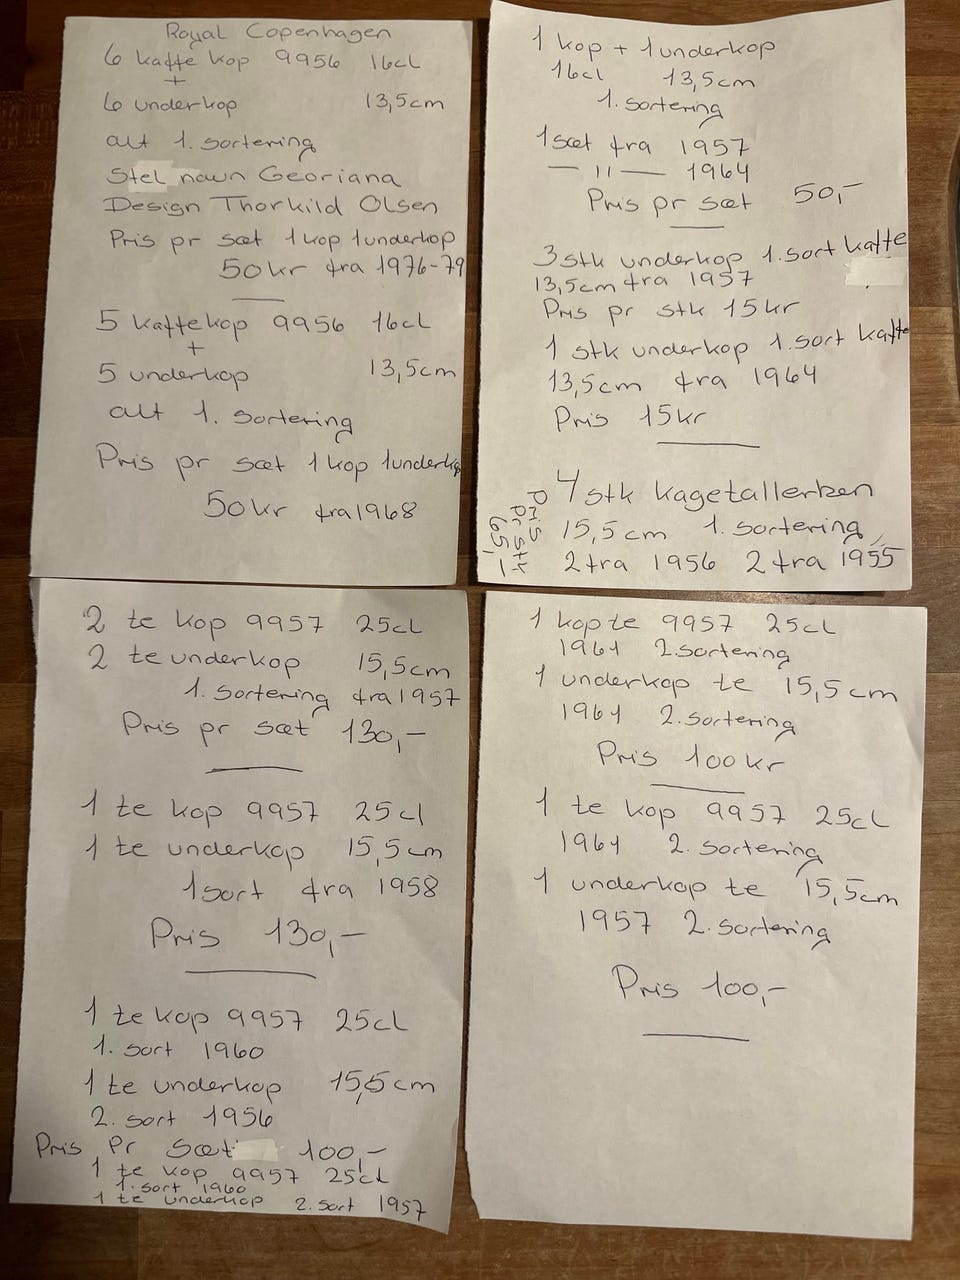 Royal Copenhagen
6 kaffe kop 9956 16cl
+
6 underkop 13,5cm
alt 1. sortering
Stel navn Georiana
Design Thorkild Olsen
Pris pr sæt 1 kop 1 underkop
50 kr fra 1976-79
5 kaffekop 9956 16cl
+
5 underkop 13,5cm
alt 1. sortering
Pris pr sæt 1 kop 1 underkop
50 kr fra 1968
1 kop + 1 underkop
16cl 13,5cm
1. sortering
1 sæt fra 1957
— 11 — 1964
Pris pr sæt 50,-
3 stk underkop 1. sort kaffe
13,5cm fra 1957
Pris pr stk 15kr
1 stk underkop 1. sort kaffe
13,5cm fra 1964
Pris 15kr
4 stk kagetallerken
15,5cm 1. sortering
2 fra 1956 2 fra 1955
Pris
pr stk
65,-
2 te kop 9957 25cl
2 te underkop 15,5cm
1. sortering fra 1957
Pris pr sæt 130,-
1 te kop 9957 25cl
1 te underkop 15,5cm
1 sort fra 1958
Pris 130,-
1 te kop 9957 25cl
1. sort 1960
1 te underkop 15,5cm
2. sort 1956
Pris pr sæt 100,-
1 te kop 9957 25cl
1. sort 1960
1 te underkop 2. sort 1957
1 kop te 9957 25cl
1961 2. sortering
1 underkop te 15,5cm
1961 2. sortering
Pris 100kr
1 te kop 9957 25cl
1961 2. sortering
1 underkop te 15,5cm
1957 2. sortering
Pris 100,-